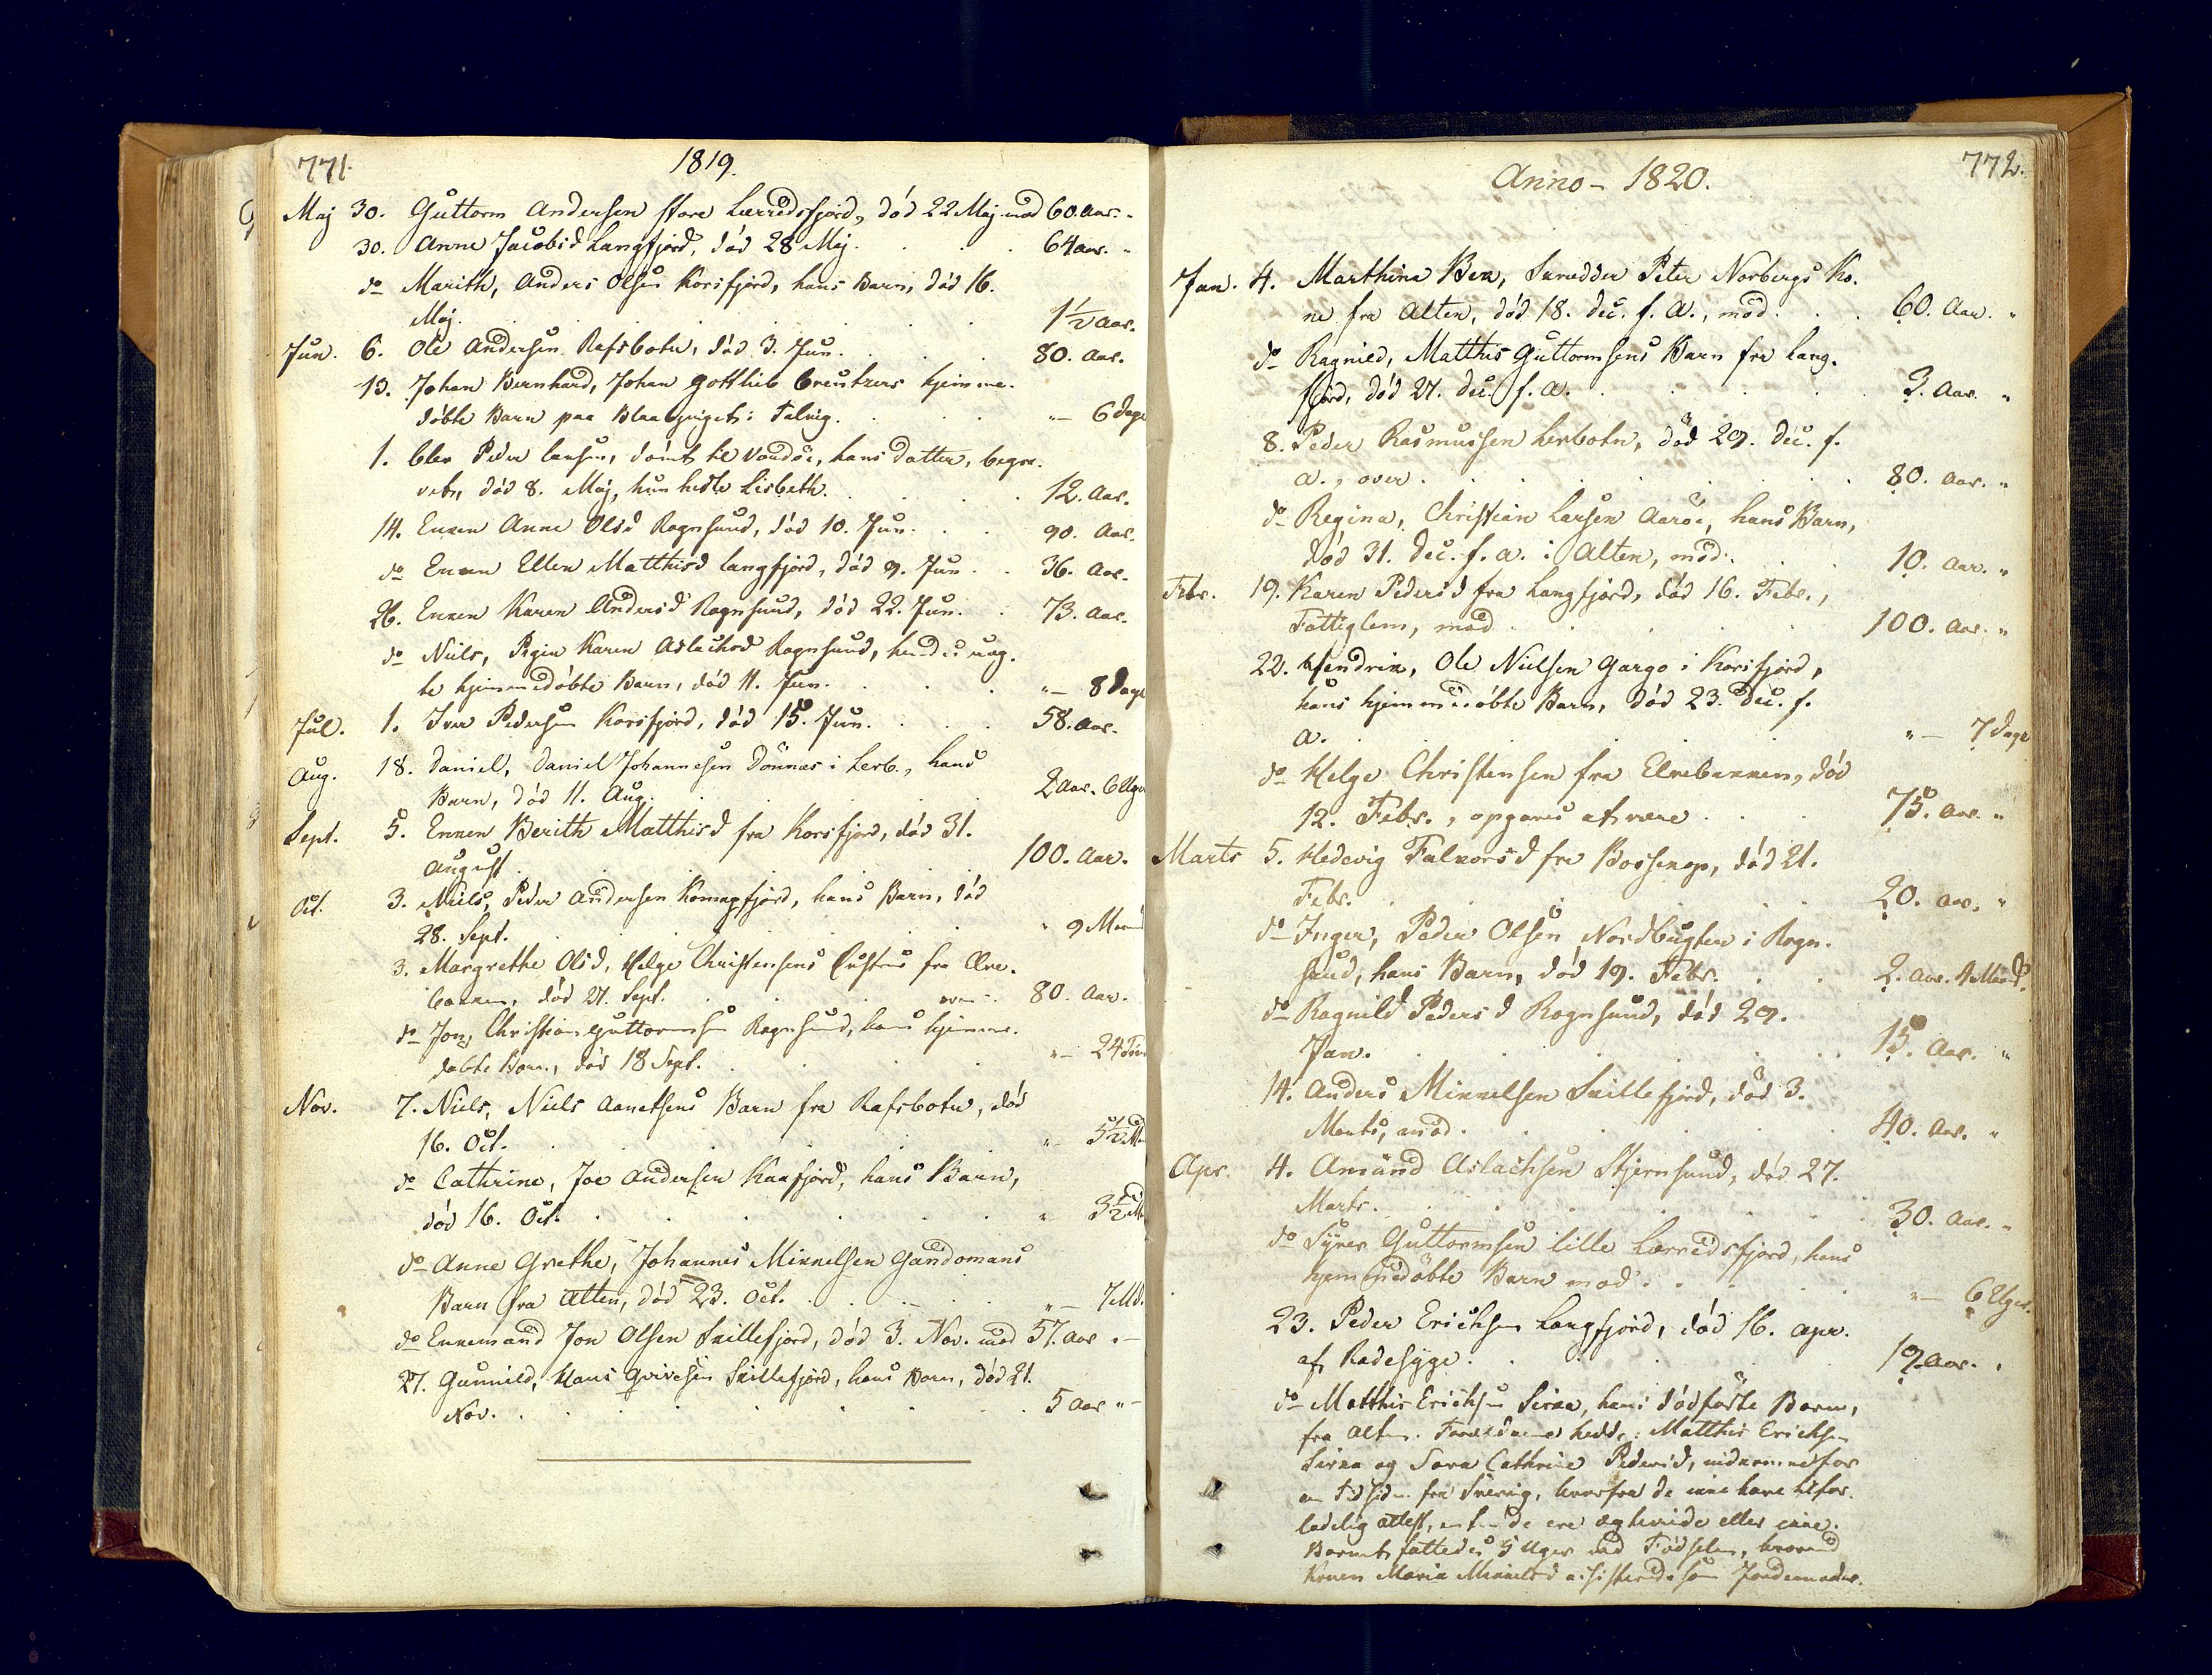 771.
1819.
Maj 30. Guttorm Andersen store Lerredsfjord, död 22 Maj mod 60. Aar.
30. Anne Jacobsd Langfjord, död 28 Maj. 64 Aar.
do Marith, Anders Olsen Korsfjord, hans Barn, död 16.
Maj. 1½ Aar.
Jun. 6. Ole Andersen Rafsbotn, död 3. Jun. 80. Aar.
13. Johan Bernhard, Johan Gottlieb Creutzers hjemme-
döbte Barn paa Talvig. "— 6 Dage
1. blev Peder Larsen, dömt til Vardöe, hans Datter, begra-
vet, död 8. Maj, hun hedte Lisbeth. 12. Aar.
14. Enken Anne Olsd Rognsund, död 10. Jun. 90. Aar.
do Enken Ellen Matthisd Langfjord, död 9. Jun. 36. Aar.
26. Enken Karen Andersd Rognsund, död 22. Jun. 73. Aar.
do Niels, Pigen Karen Aslachsd Rognsund, hendes uæg-
te hjemmedöbte Barn, död 11. Jun. "— 8 Dage
Jul. 1. Iver Pedersen Korsfjord, död 15. Jun. 58. Aar.
Aug. 18. Daniel, Daniel Johannesen Dönnes i Lerb., hans
Barn, död 11. Aug. 2 Aar. 6 Uger
Sept. 5. Enken Berith Matthisd fra Korsfjord, död 31.
August 100. Aar.
Oct. 3. Niels, Peder Andersen Komagfjord, hans Barn, död
28. Sept. " 9 Maaned
3. Margrethe Olsd, Helge Christensens Hustrue fra Elve-
bakken, död 27. Sept. over 80. Aar.
do Jon, Christian Guttormsen Rognsund, hans hjemme-
döbte Barn, död 18 Sept. "— 24 Tim
Nov. 7. Niels, Niels Aanetsens Barn fra Rafsbotn, död
16. Oct. "— 5½ M
do Cathrine, Joe Andersen Kaafjord, hans Barn,
död 16. Oct. " 3½ M
do Anne Grethe, Johannes Mikkelsen Gandomans
Barn fra Alten, död 23. Oct. "— 7 Md.
do Enkemand Jon Olsen Skillefjord, död 3. Nov. mod 57. Aar "—
27. Gunnild, Hans Skillefjord, hans Barn, död 21.
Nov. 5 Aar "—
772.
Anno – 1820.
Jan. 4. Marthina Bea, Skrædder Peter Norbergs Ko-
ne fra Alten, död 18. Dec. f. A., mod. 60. Aar. "
do Ragnild, Matthis Guttormsens Barn fra Lang-
fjord, död 27. Dec. f. A. 3. Aar. "
8. Peder Rasmussen Lerbotn, död 29. Dec. f.
A., over 80. Aar. "
do Regina, Christian Larsen Aaröe, hans Barn,
död 31. Dec. f. A. i Alten, mod. 10. Aar. "
Febr. 19. Karen Pedersd fra Langfjord, död 16. Febr.,
Fattiglem, mod 100. Aar. "
22. Hendrik, Ole Nielsen Gargo i Korsfjord,
hans hjemmedöbte Barn, död 23. Dec. f.
A. "— 7 Dage
do Helge Christensen fra Elvebakken, död
12. Febr., opgaves at være 75. Aar. "
Marts 5. Hedevig Falkorsd fra Bossekop, död 21.
Febr. 20. Aar. "
do Inger, Peder Olsen Nordbugten i Rogn-
sund, hans Barn, död 19. Febr. 2. Aar. 4 Maaned.
do Ragnild Pedersd Rognsund, död 29.
Jan. 15. Aar. "
14. Anders Mikkelsen Skillefjord, död 3.
Marts, mod. 40. Aar. "
Apr. 4. Amund Aslachsen Stjernsund, död 27.
Marts. 30. Aar. "
do Syver Guttormsen lille Lerredsfjord, hans
hjemmedöbte Barn mod. "— 6 Uger.
23. Peder Erichsen Langfjord, död 16. Apr.
af Radesyge. 19. Aar. "
do Matthis Erichsen Sirka, hans dödfödte Barn,
fra Alten. Forældrene hedde: Matthis Erichsen
Sirka og Sara Cathrine Pedersd, indkomne for
en Tid siden fra Sverrig, hvorfra de ikke have tilfor-
ladelig Attest, enten de ere ægteviede eller ikke.
Barnet fattedes 5 Uger ved Födselen, hvorved
Konen Maria Mikkelsd assisterede som Jordemoder.